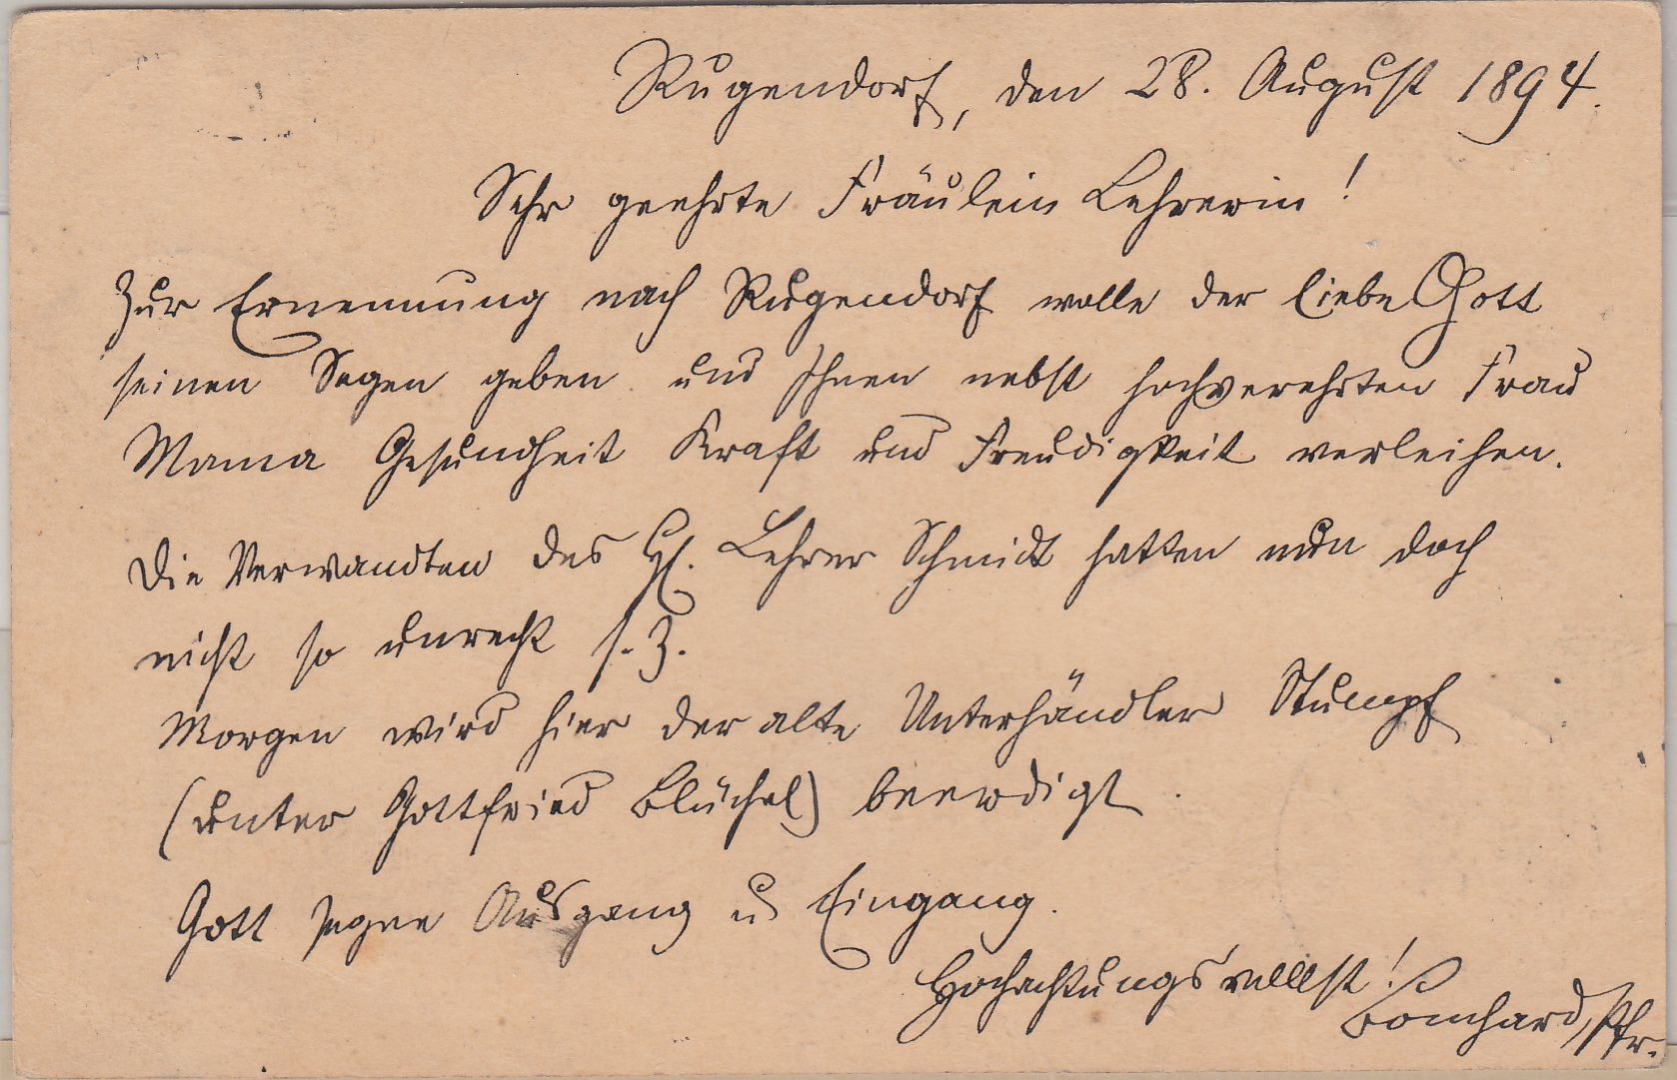 Rugendorf, den 28. August 1894.
Sehr geehrte Fräulein Lehrerin!
Zur Ernennung nach Rugendorf wolle der liebe Gott
seinen Segen geben und Ihnen nebst hochverehrten Frau
Mama Gesundheit Kraft und Freudigkeit verleihen.
Die Verwandten des H. Lehrer Schmidt hatten nun doch
nicht so unrecht s. Z.
Morgen wird hier der alte Unterhändler Stumpf
(unter Gottfried Blüchel) beerdigt.
Gott segne Ausgang u Eingang.
Hochachtungsvollst!
Bomhard, Pfr.